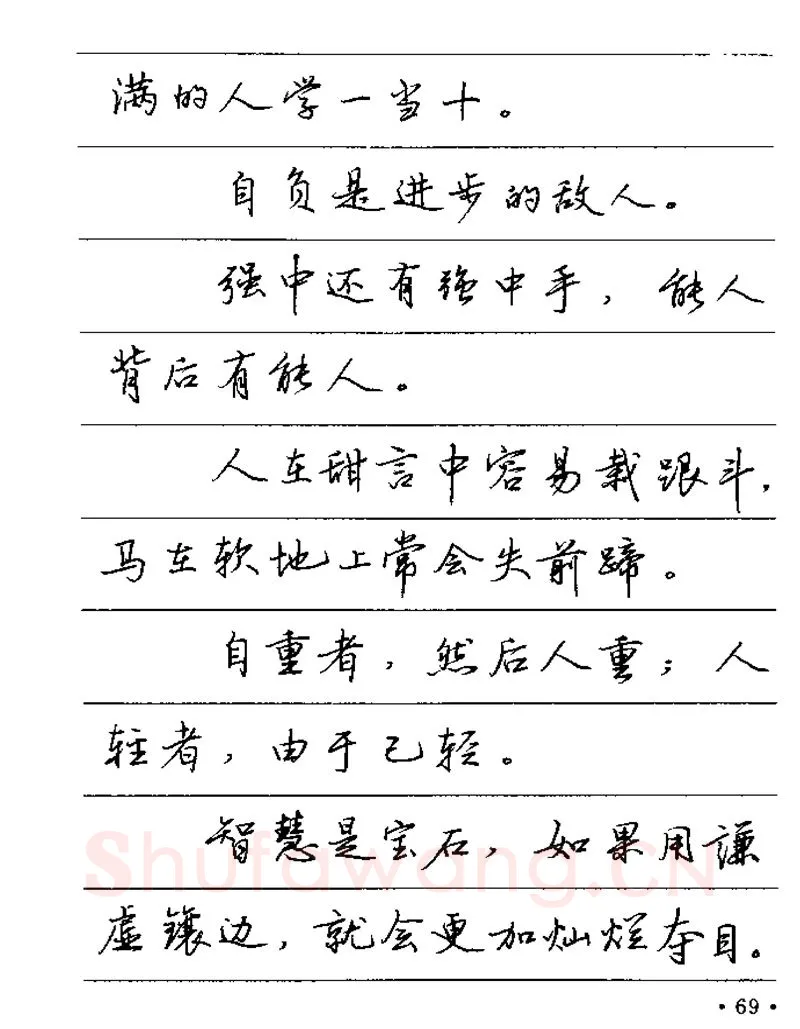 满的人学一当十。
自负是进步的敌人。
强中还有强中手，能人
背后有能人。
人在甜言中容易栽跟斗，
马在软地上常会失前蹄。
自重者，然后人重；人
轻者，由于己轻。
智慧是宝石，如果用谦
虚镶边，就会更加灿烂夺目。
Shufawang.CN
·69·